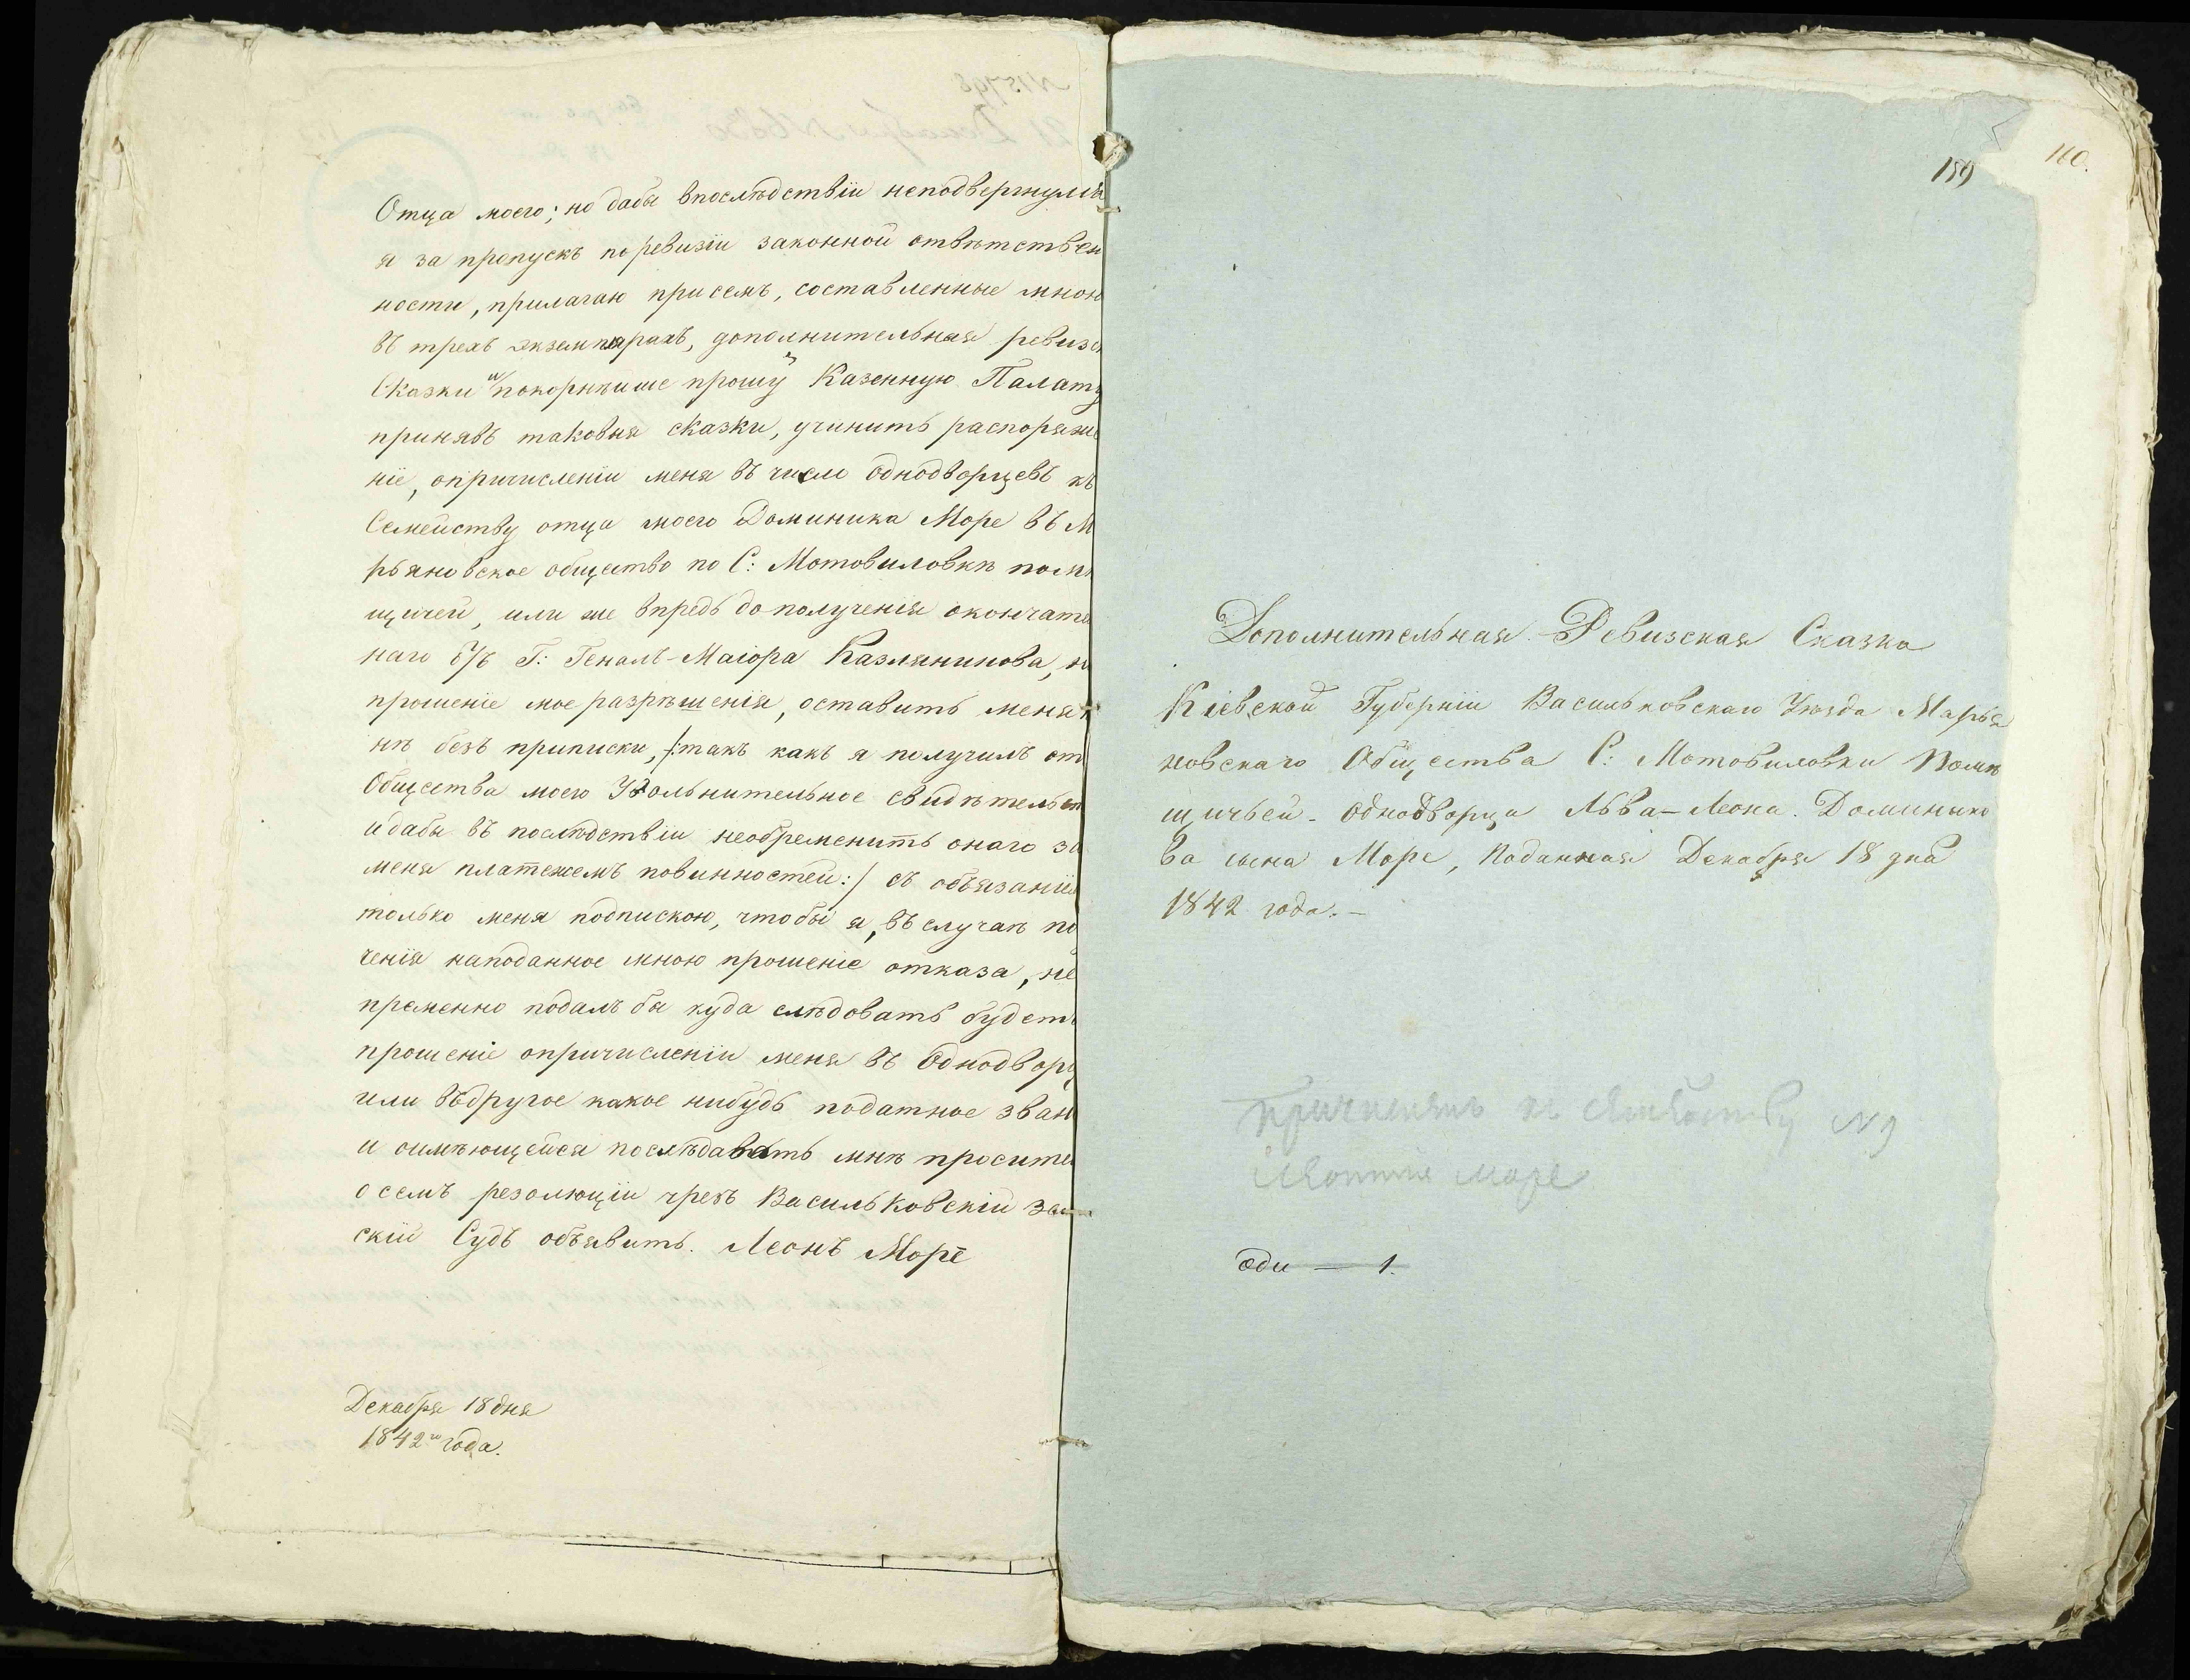 Отца моего; но дабы впослѣдствіи неподвергнулся
я за пропускъ поревизіи законной отвѣтствен
ности, прилагаю присемъ, составленные мною
въ трехъ экземпярахъ, дополнительная ревизс
Сказки и покорнѣише прошу Казенную Палату
принявъ таковыя сказки, учинить распоряже
ніе, опричисленіи меня въ число Однодворцевъ къ
Семейству отца моего Доминика Море въ М
рьяновское общество по С: Мотовиловкѣ помѣ
щичей, или же впредь до полученія окончате
наго Г: Геналъ-Маіора Казлянинова, на
прошеніе мое разрѣшенія, оставить меня
нѣ безъ приписки, /:такъ какъ я получилъ от
Общества моего Увольнительное свидѣтельст
идабы въ послѣдствіи необременить онаго за
меня платежемъ повинностей:/ съ обязаніи
только меня подпискою, чтобы я, въ случаѣ по
ченія наподанное мною прошеніе отказа, не
пременно подалъ бы куда слѣдовать будетъ
прошеніе опричисленіи меня въ Однодворц
или въдругое какое нибудь податное зван
и оимѣющейся послѣдавать мнѣ просите
о семъ резолюціи чрезъ Васильковскій зем
скій Судъ объявить. Леонъ Море
Декабря 18 дня
1842го года.
159
160.
Дополнительная Ревизская Сказка
Кіевской Губерніи Васильковскаго Уѣзда Марья
новскаго Общества С: Мотовиловки Помѣ
щичьей Однодворца Льва-Леона Доминико
ва сына Море, Поданная Декабря 18 дня
1842 года.-
Причислить къ семейству №9
Море
оди — 1.